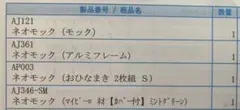 製品番号 / 商品名 数量
AJ121
ネオモック (モック) 1
AJ361
ネオモック (アルミフレーム) 1
AP003
ネオモック (おひなまき 2枚組 S) 1
AJ346-SM
ネオモック (ﾏｲﾋﾟｰﾛ 材【ｶﾊﾞｰ付】ﾐﾝﾄｸﾞﾘｰﾝ) 1